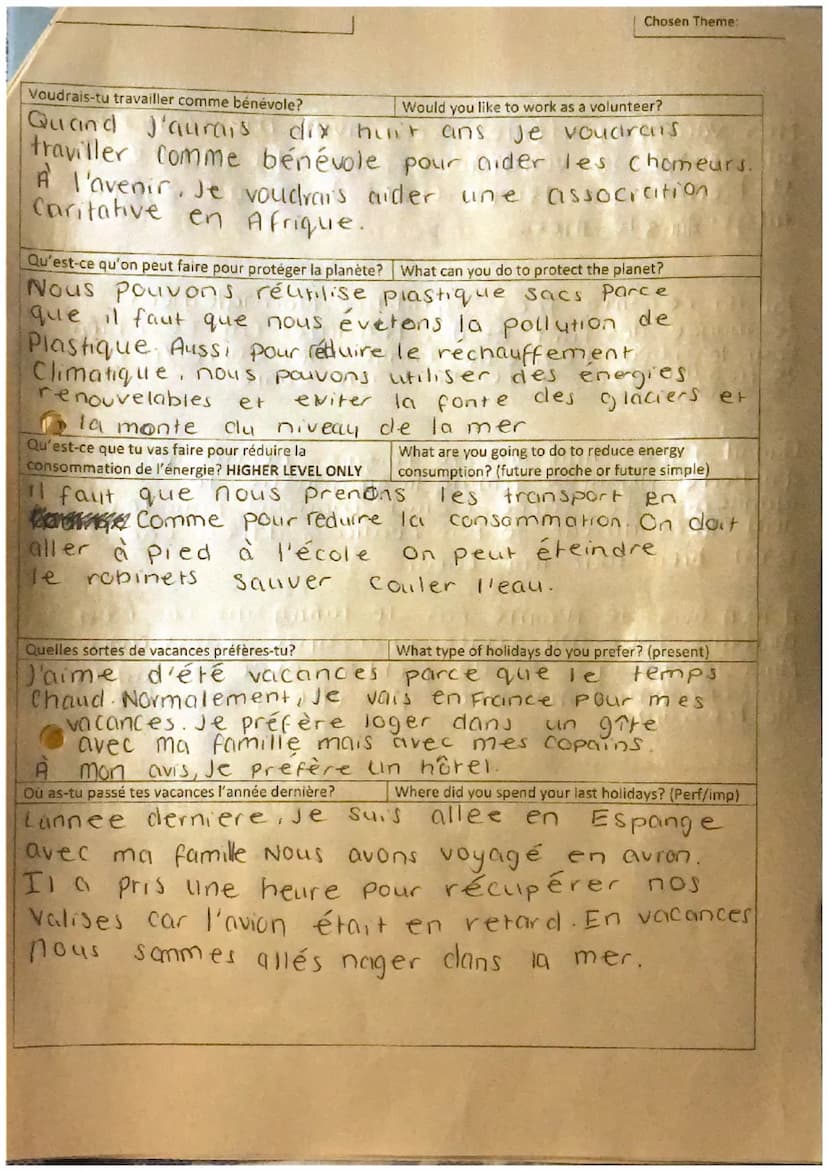 Chosen Theme:
Voudrais-tu travailler comme bénévole? Would you like to work as a volunteer?
Quand J'aurais dix huit ans Je voudrais
traviller comme bénévole pour aider les chomeurs.
À l'avenir, Je voudrais aider une associcition
Caritative en Afrique.
Qu'est-ce qu'on peut faire pour protéger la planète? What can you do to protect the planet?
Nous pouvons réutilise plastique sacs Parce
que il faut que nous évitons la pollution de
Plastique. Aussi pour réduire le réchauffement
Climatique, nous pouvons utiliser des énergies
renouvelables et eviter la fonte des glaciers et
la monte du niveau de la mer
Qu'est-ce que tu vas faire pour réduire la What are you going to do to reduce energy
consommation de l'énergie? HIGHER LEVEL ONLY consumption? (future proche or future simple)
Il faut que nous prenons les transport en
Comme pour réduire la consommation. On doit
aller à pied à l'école on peut éteindre
le robinets sauver couler l'eau.
Quelles sortes de vacances préfères-tu? What type of holidays do you prefer? (present)
J'aime d'été vacances parce que le temps
Chaud. Normalement, Je vais en France pour mes
vacances. Je préfère loger dans un gîte
avec ma famille mais avec mes copains.
À mon avis, Je préfère un hôtel.
Où as-tu passé tes vacances l'année dernière? Where did you spend your last holidays? (Perf/imp)
L'annee derniere, Je suis allee en Espange
avec ma famille Nous avons voyagé en avion.
Il a pris une heure pour récupérer nos
Valises car l'avion était en retard. En vacances
nous sommes allés nager dans la mer.